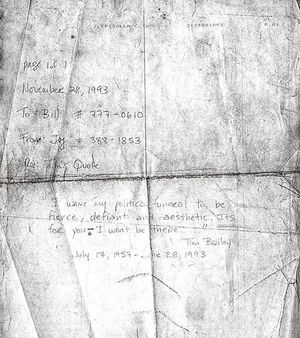 page 1 of 1
November 28, 1993
To: Bill # 777-0610
From: Joy # 388-1853
Re: Tim's Quote
I want my political funeral to be
fierce, defiant and aesthetic. Its
for you - I wont be there."
Tim Bailey
July 17, 1957 - June 28, 1993